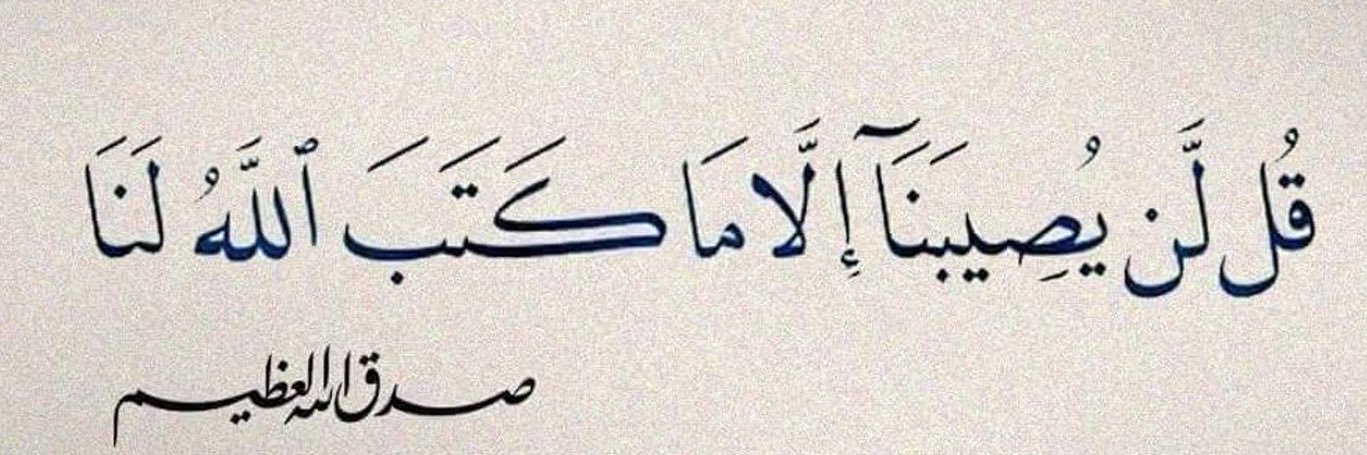 قُل لَّن يُصِيبَنَآ إِلَّا مَا كَتَبَ ٱللَّهُ لَنَا
صدق الله العظيم